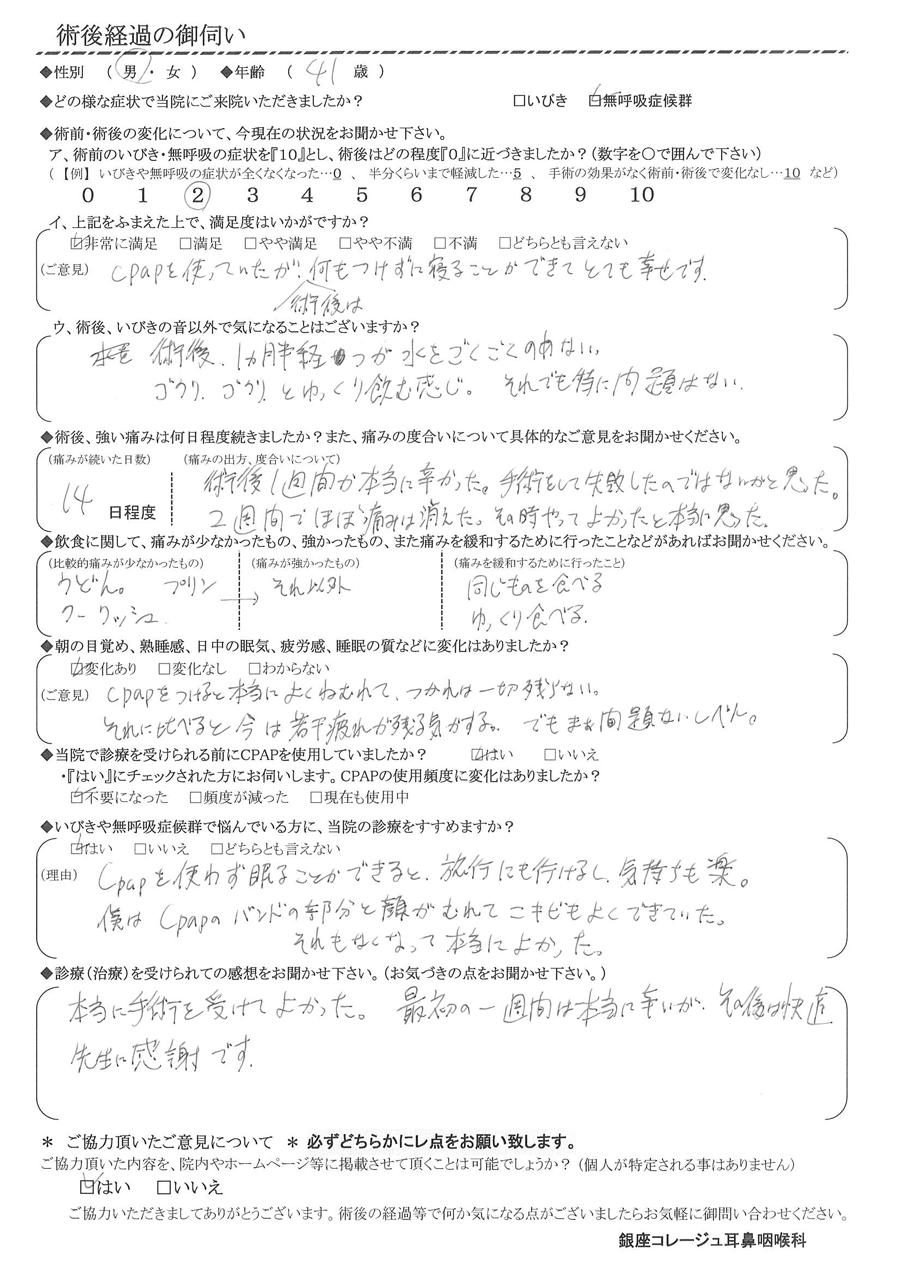 術後経過の御伺い
◆性別 （ 男 ・ 女 ） ◆年齢 （ 41 歳 ）
◆どの様な症状で当院にご来院いただきましたか？ □いびき ☑無呼吸症候群
◆術前・術後の変化について、今現在の状況をお聞かせ下さい。
ア、術前のいびき・無呼吸の症状を『10』とし、術後はどの程度『0』に近づきましたか？（数字を○で囲んで下さい）
（ 【例】 いびきや無呼吸の症状が全くなくなった…0 、 半分くらいまで軽減した…5 、 手術の効果がなく術前・術後で変化なし…10 など）
0 1 2 3 4 5 6 7 8 9 10
イ、上記をふまえた上で、満足度はいかがですか？
☑非常に満足 □満足 □やや満足 □やや不満 □不満 □どちらとも言えない
（ご意見） cpapを使っていたが、何もつけずに寝ることができてとても幸せです.
術後は
ウ、術後、いびきの音以外で気になることはございますか？
術後、1ヵ月半経つが水をごくごくのめない,
ゴクリ、ゴクリとゆっくり飲む感じ。 それでも特に問題はない.
◆術後、強い痛みは何日程度続きましたか？また、痛みの度合いについて具体的なご意見をお聞かせください。
（痛みが続いた日数） （痛みの出方、度合いについて）
14 日程度
術後1週間が本当に辛かった。手術をして失敗したのではないかと思った。
2週間でほぼ痛みは消えた。その時やってよかったと本当に思った.
◆飲食に関して、痛みが少なかったもの、強かったもの、また痛みを緩和するために行ったことなどがあればお聞かせください。
（比較的痛みが少なかったもの） （痛みが強かったもの） （痛みを緩和するために行ったこと）
うどん。 プリン → それ以外 同じものを食べる
クーリッシュ. ゆっくり食べる.
◆朝の目覚め、熟睡感、日中の眠気、疲労感、睡眠の質などに変化はありましたか？
☑変化あり □変化なし □わからない
（ご意見） cpapをつけると本当によくねむれて、つかれは一切残らない。
それに比べると今は若干疲れが残る気がする。 でもまぁ問題ないレベル。
◆当院で診療を受けられる前にCPAPを使用していましたか？ ☑はい □いいえ
・『はい』にチェックされた方にお伺いします。CPAPの使用頻度に変化はありましたか？
☑不要になった □頻度が減った □現在も使用中
◆いびきや無呼吸症候群で悩んでいる方に、当院の診療をすすめますか？
☑はい □いいえ □どちらとも言えない
（理由） Cpapを使わず眠ることができると、旅行にも行けるし、気持ちも楽。
僕はCpapのバンドの部分と顔がむれてニキビもよくできていた。
それもなくなって本当によかった。
◆診療（治療）を受けられての感想をお聞かせ下さい。（お気づきの点をお聞かせ下さい。）
本当に手術を受けてよかった。 最初の一週間は本当に辛いが、その後は快適
先生に感謝です.
＊ ご協力頂いたご意見について ＊ 必ずどちらかにレ点をお願い致します。
ご協力頂いた内容を、院内やホームページ等に掲載させて頂くことは可能でしょうか？（個人が特定される事はありません）
☑はい □いいえ
ご協力いただきましてありがとうございます。術後の経過等で何か気になる点がございましたらお気軽に御問い合わせください。
銀座コレージュ耳鼻咽喉科